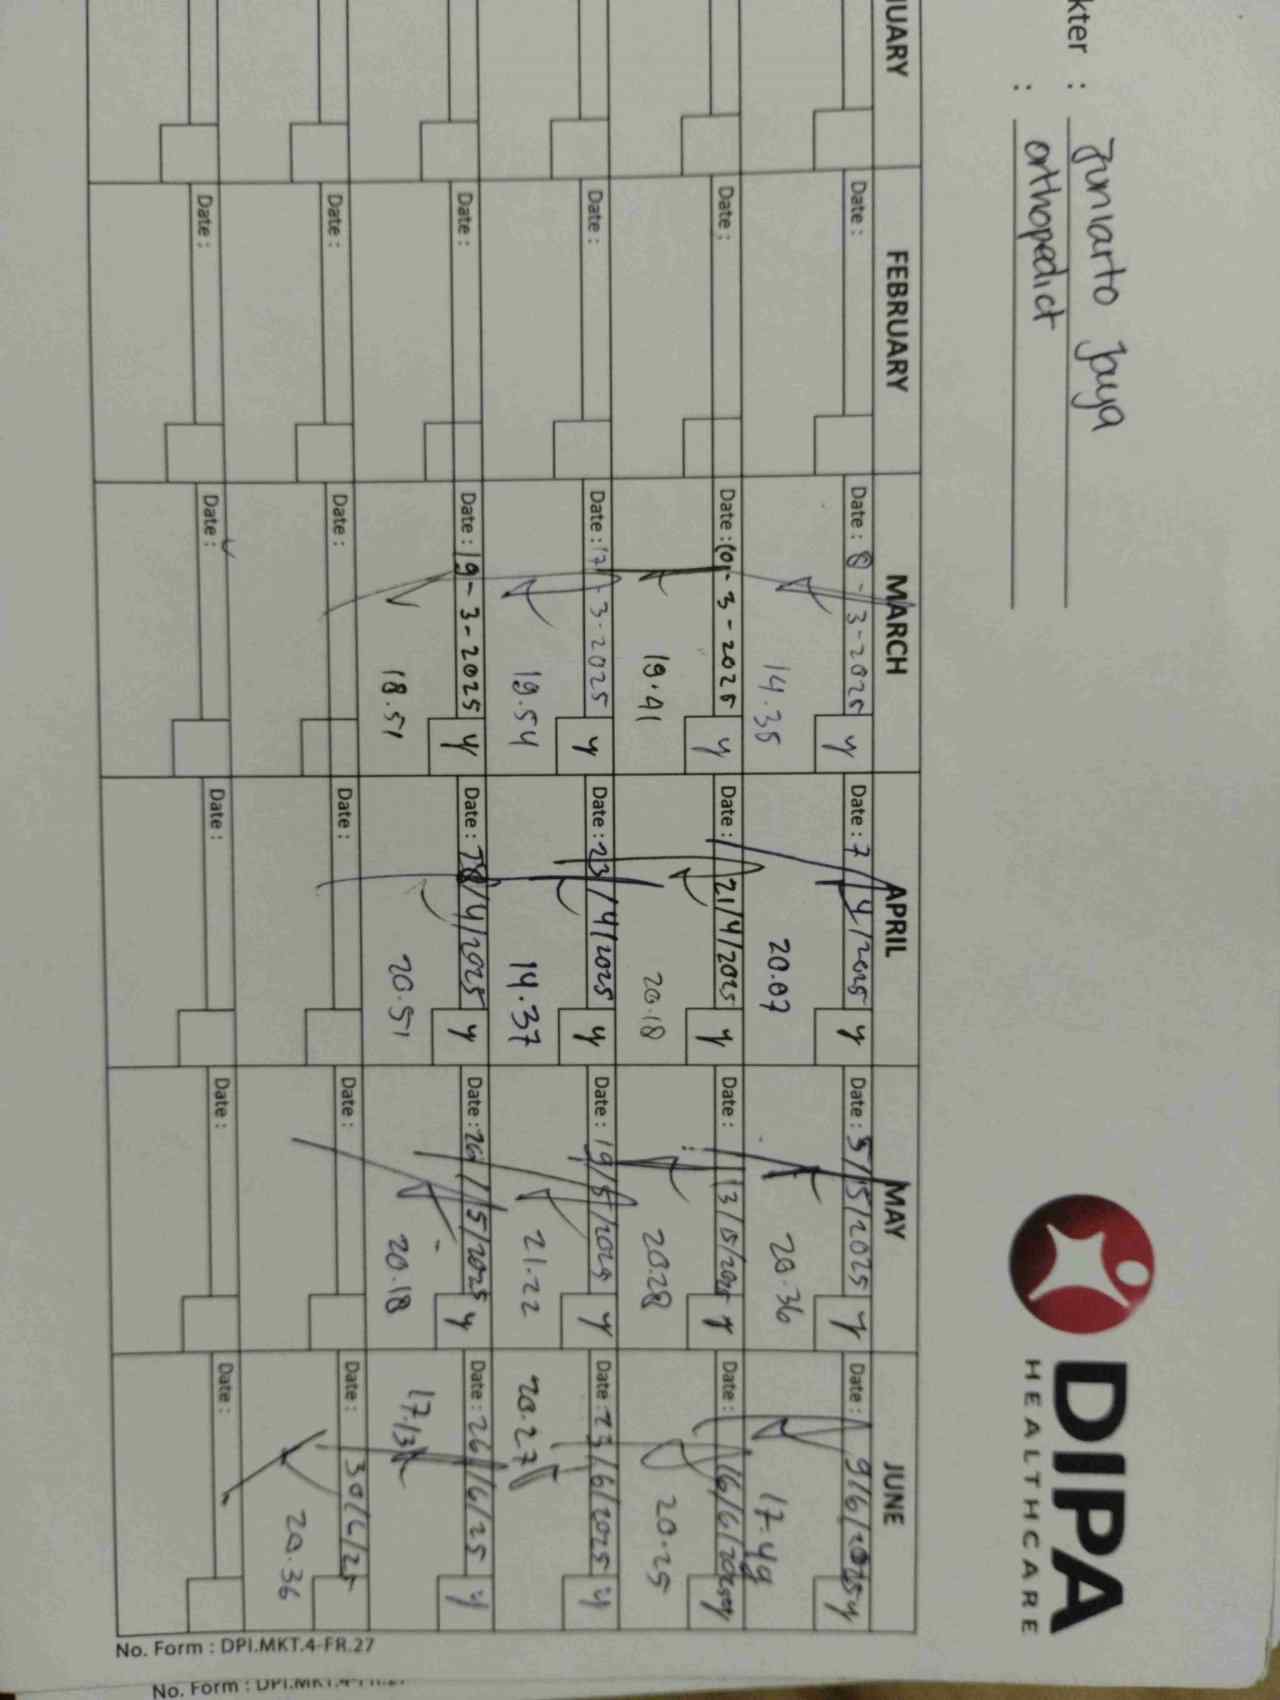 DIPA
HEALTHCARE
kter : Juniarto Jaya
: orthopedict
UARY FEBRUARY MARCH APRIL MAY JUNE
Date : Date : 8-3-2025 y Date : 7/4/2025 y Date : 5/5/2025 y Date : 9/6/2025 y
14.35 20.07 20.36 17.49
Date : Date : 10-3-2025 y Date : 21/4/2025 y Date : 13/5/2025 y Date : 16/6/2025 y
19.41 20.18 20.28 20.25
Date : Date : 17-3-2025 y Date : 23/4/2025 y Date : 19/5/2025 y Date : 23/6/2025 y
19.54 14.37 21.22 20.27
Date : Date : 19-3-2025 y Date : 28/4/2025 y Date : 26/5/2025 y Date : 26/6/25 y
18.51 20.51 20.18 17.13
Date : Date : Date : Date : Date : 30/6/25
20.36
Date : Date : Date : Date : Date :
No. Form : DPI.MKT.4-FR.27
No. Form : DPI.MKT.4-FR.27